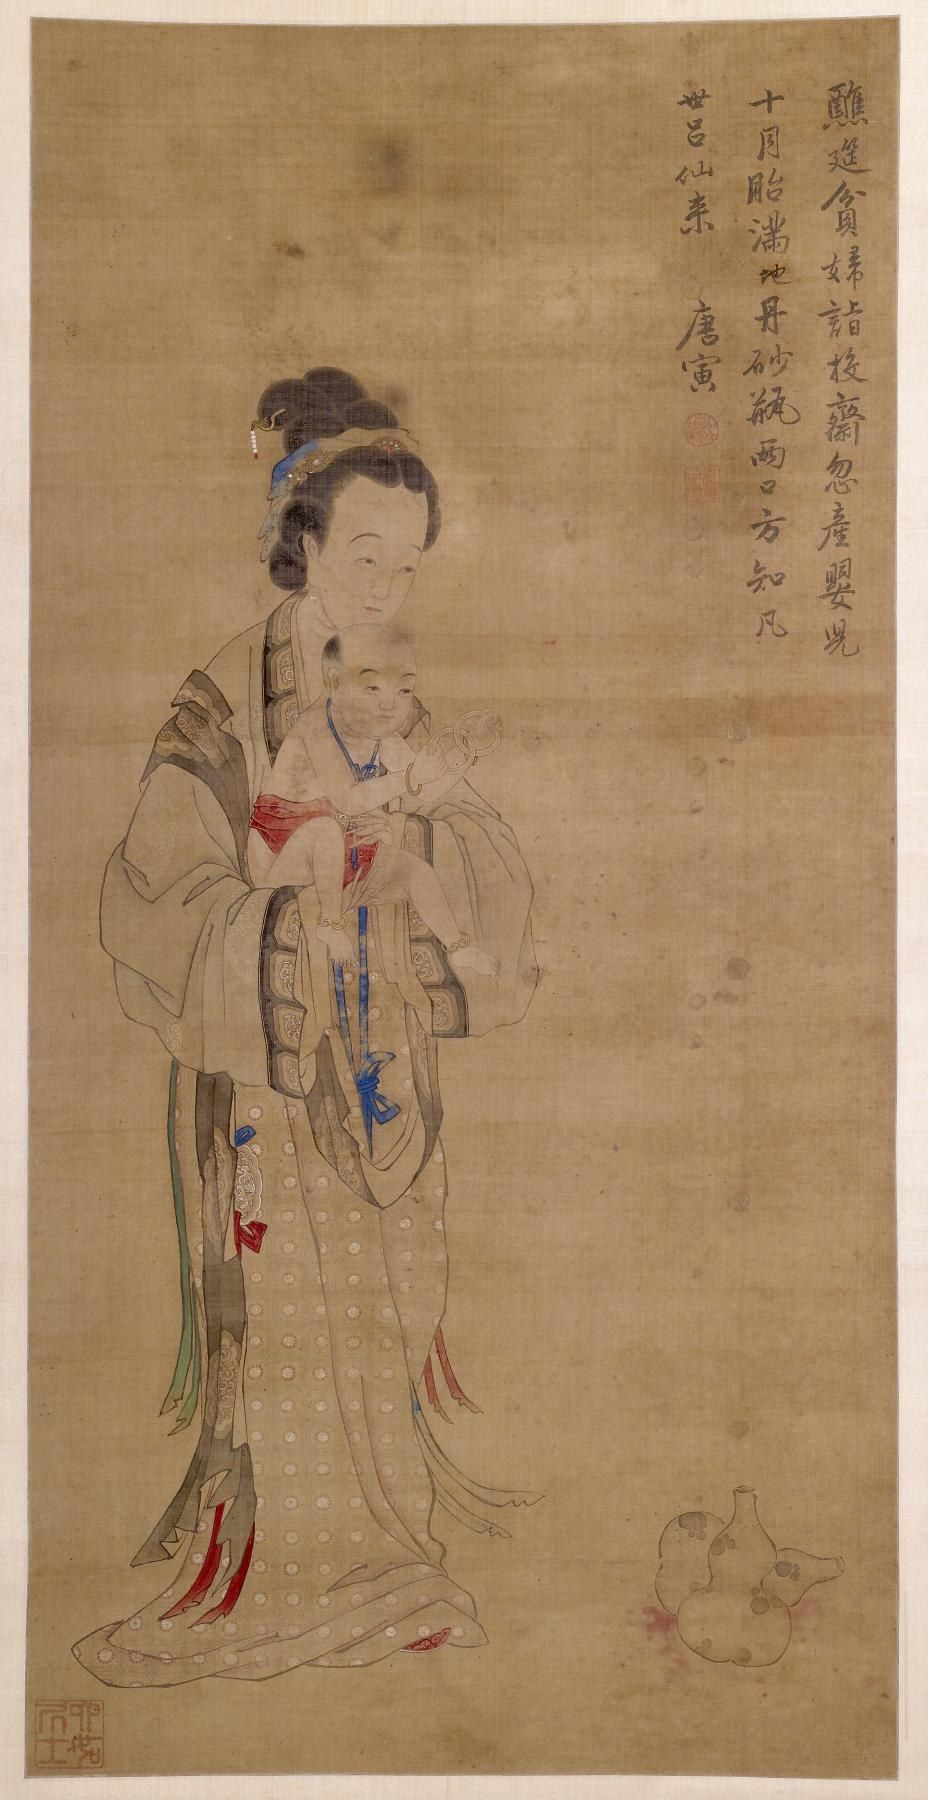 醮筵貧婦詣投齋忽產嬰児
十月胎滿地丹砂瓶兩口方知凡
世呂仙来
唐寅